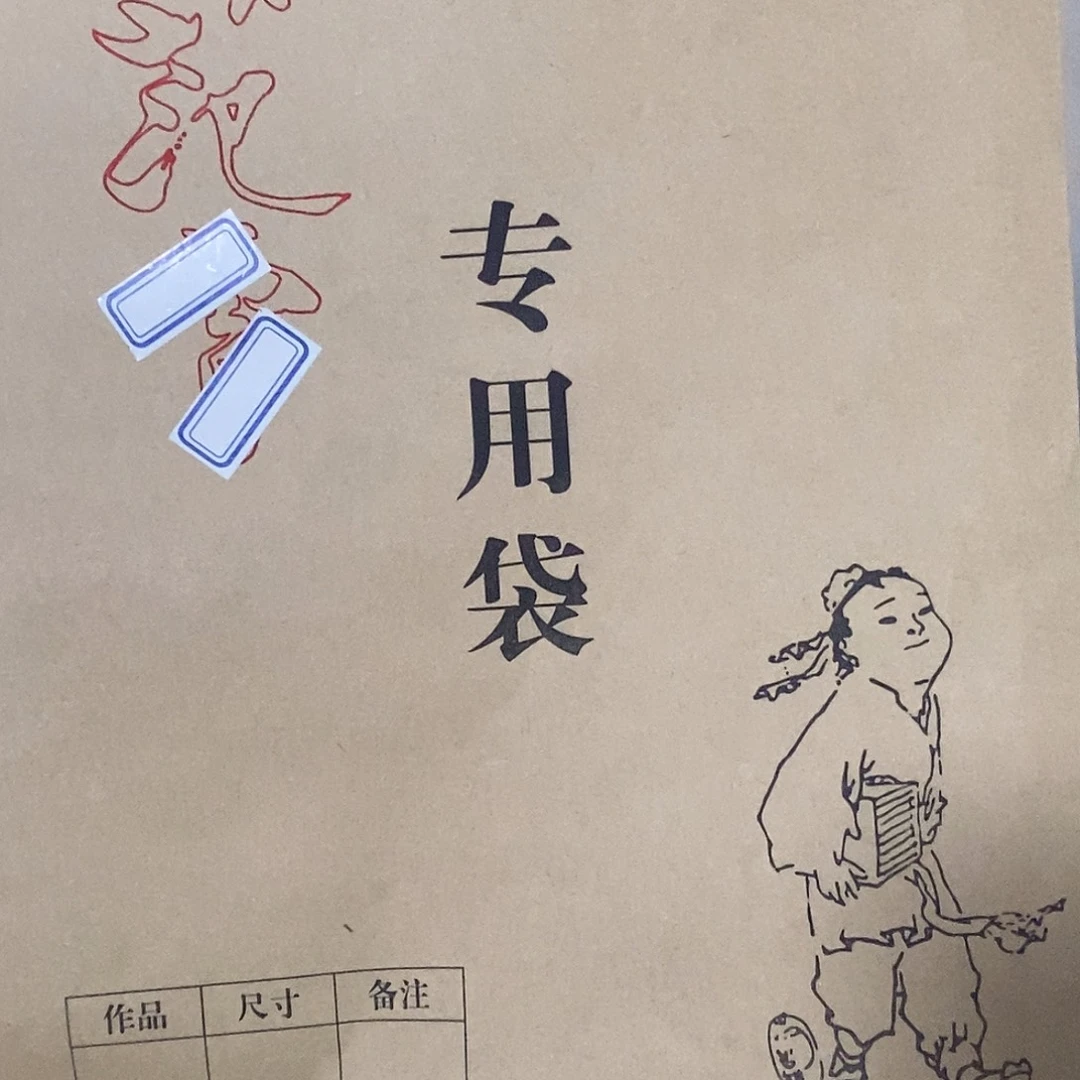 记
专用袋
作品 尺寸 备注